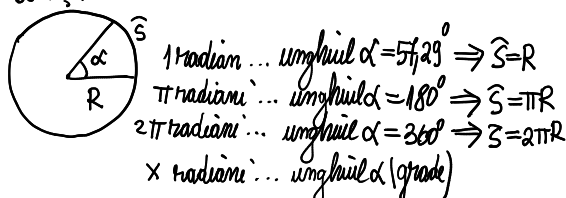 ŝ
α
R
1 radian ... unghiul α = 57,29° ⇒ ŝ = R
π radiani ... unghiul α = 180° ⇒ ŝ = πR
2π radiani ... unghiul α = 360° ⇒ ŝ = 2πR
x radiani ... unghiul α (grade)